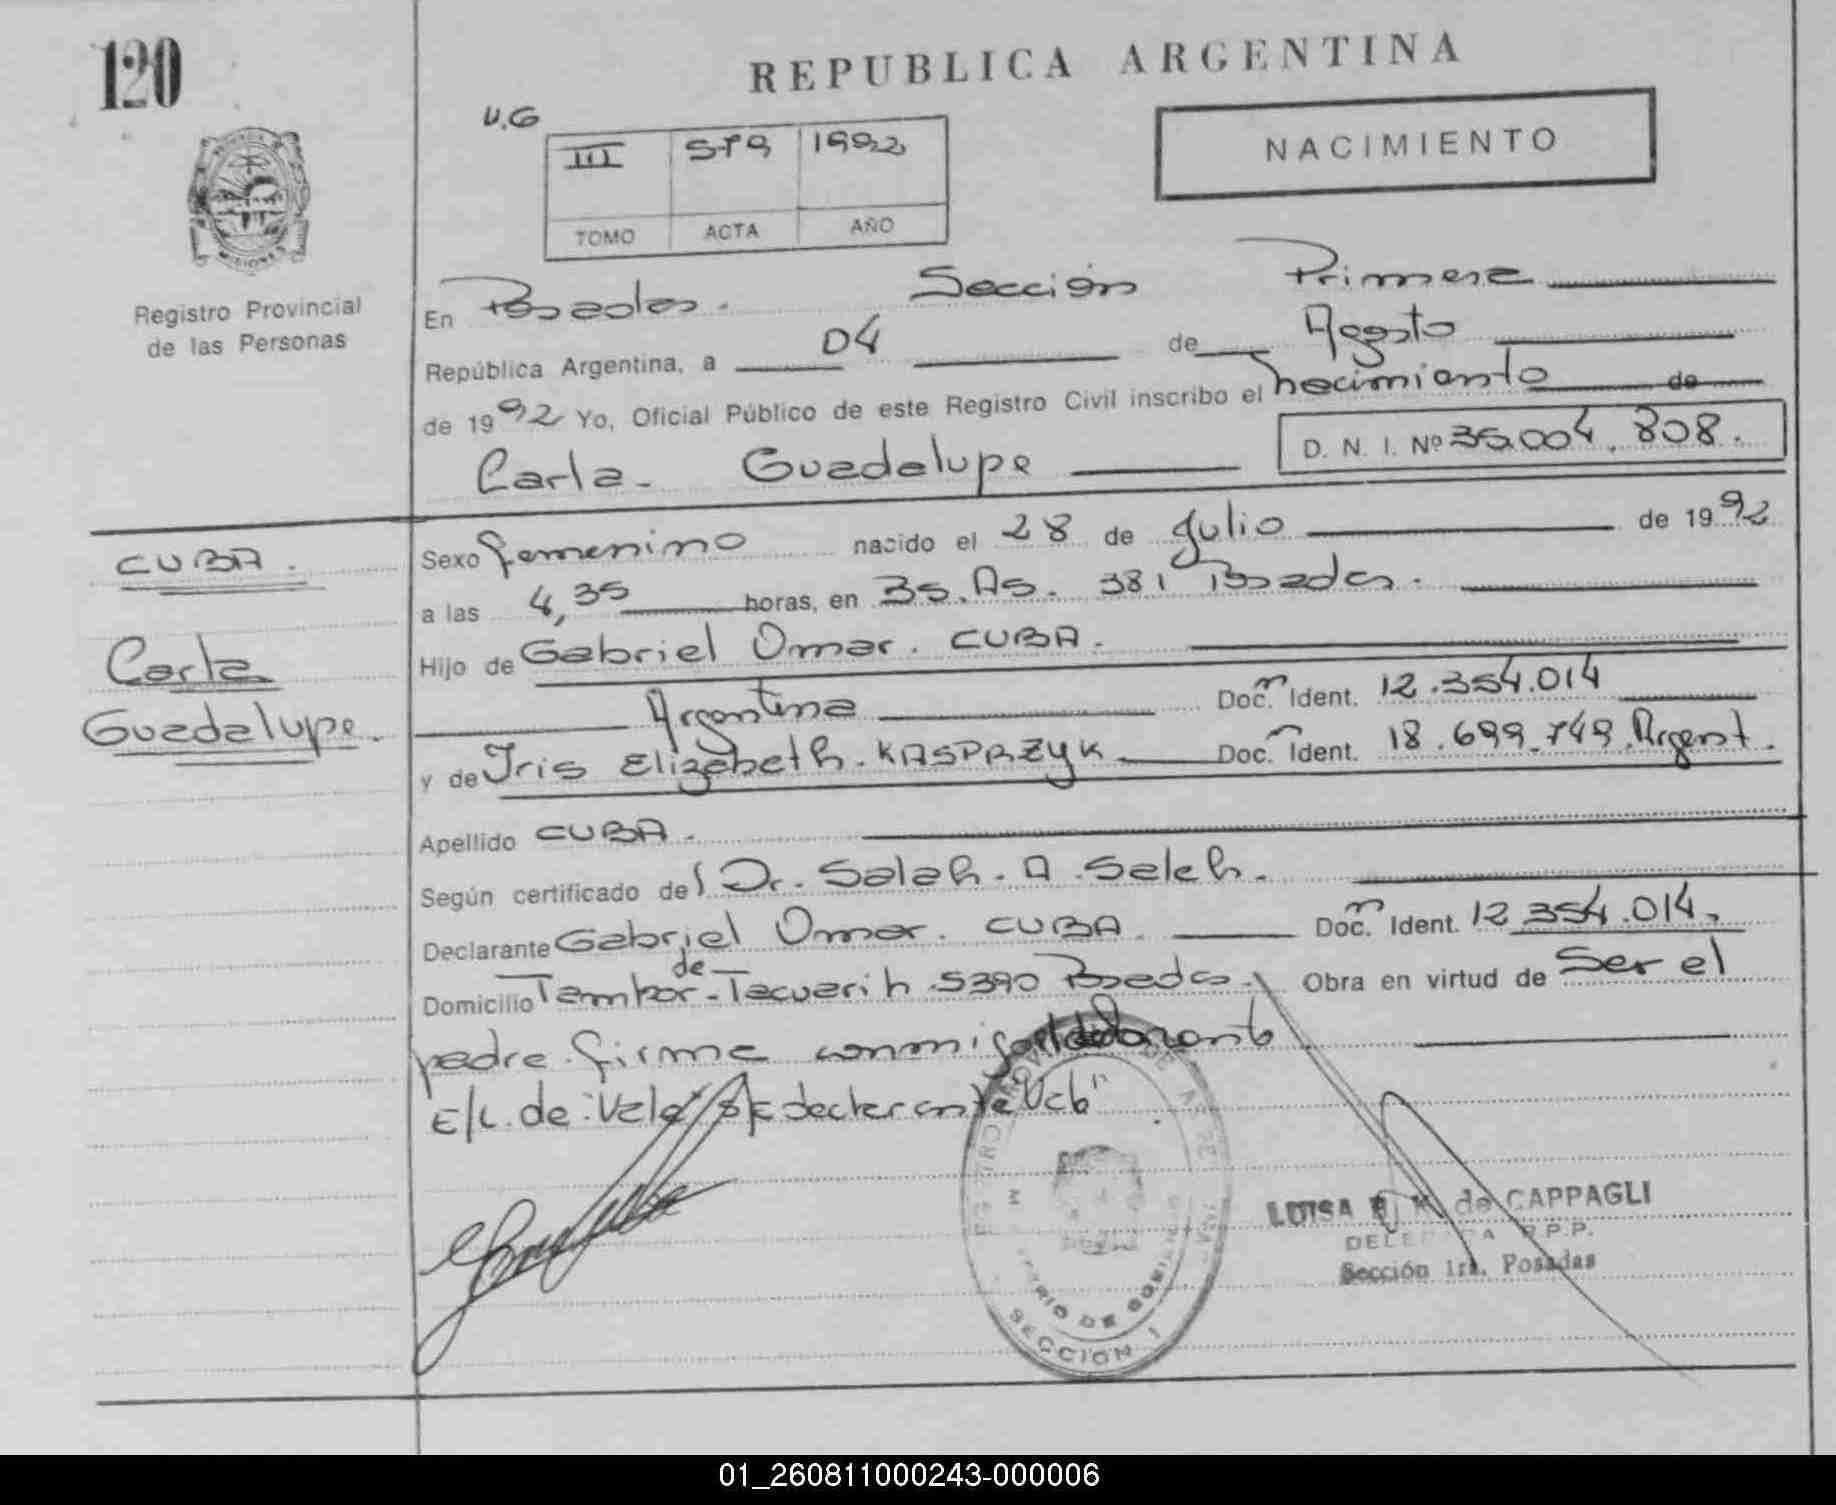 120
REPUBLICA ARGENTINA
U.G
NACIMIENTO
III 579 1992
TOMO ACTA AÑO
MISIONES
Registro Provincial
de las Personas
En Posadas. Sección Primera
República Argentina, a 04 de Agosto
de 1992 Yo, Oficial Público de este Registro Civil inscribo el nacimiento de
Carla. Guadalupe D. N. I. Nº 35.004.808.
CUBA.
Carla
Guadalupe.
Sexo femenino nacido el 28 de Julio de 1992
a las 4,35 horas, en Bs. As. 381 Posadas.
Hijo de Gabriel Omar. CUBA.
Argentina Doc. Ident. 12.354.014
y de Iris Elizabeth. KASPRZYK Doc. Ident. 18.699.749. Argent.
Apellido CUBA.
Según certificado del Dr. Salah. A. Saleh.
Declarante Gabriel Omar. CUBA Doc. Ident. 12.354.014.
de
Domicilio Tambor - Tacuarih 5390 Posadas. Obra en virtud de Ser el
padre. firma conmigo declarante
E/L. de: Vale S/R declarante "Vale"
LUISA E. K. de CAPPAGLI
DELEGADA R.P.P.
Sección 1ra. Posadas
SECCION 1
01_260811000243-000006